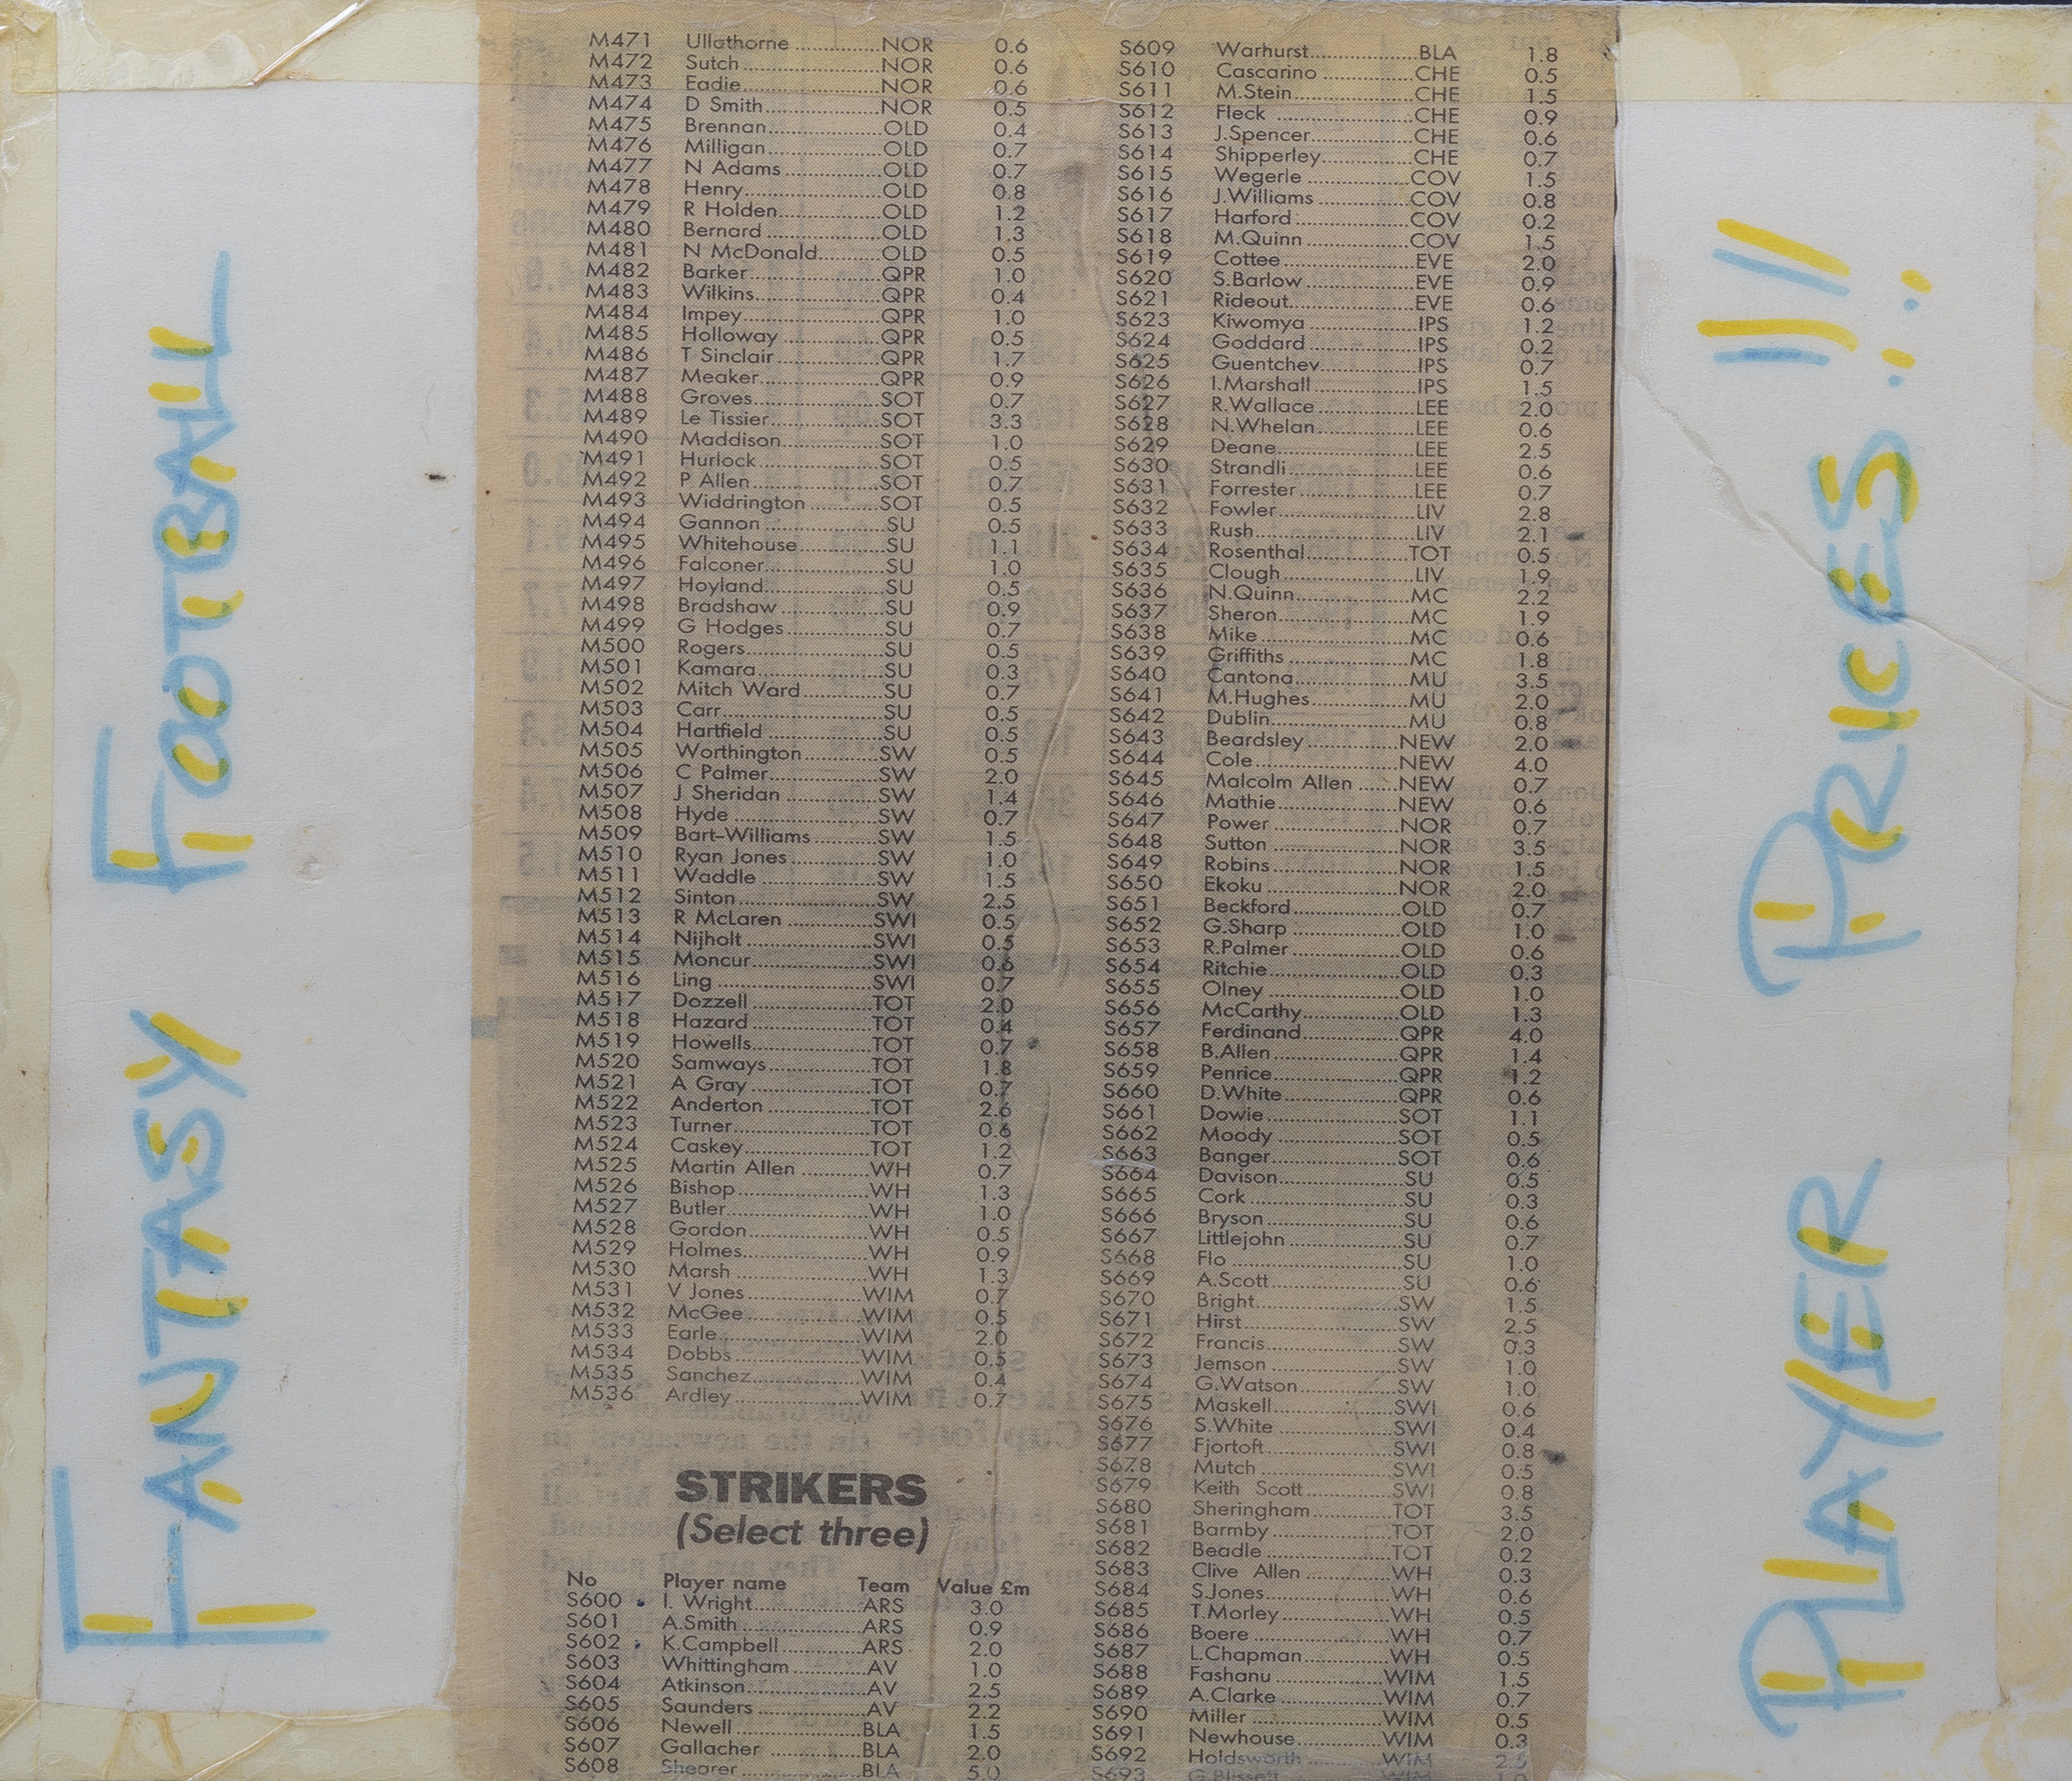 FANTASY FOOTBALL
M471 Ullathorne NOR 0.6
M472 Sutch NOR 0.6
M473 Eadie NOR 0.6
M474 D Smith NOR 0.5
M475 Brennan OLD 0.4
M476 Milligan OLD 0.7
M477 N Adams OLD 0.7
M478 Henry OLD 0.8
M479 R Holden OLD 1.2
M480 Bernard OLD 1.3
M481 N McDonald OLD 0.5
M482 Barker QPR 1.0
M483 Wilkins QPR 0.4
M484 Impey QPR 1.0
M485 Holloway QPR 0.5
M486 T Sinclair QPR 1.7
M487 Meaker QPR 0.9
M488 Groves SOT 0.7
M489 Le Tissier SOT 3.3
M490 Maddison SOT 1.0
M491 Hurlock SOT 0.5
M492 P Allen SOT 0.7
M493 Widdrington SOT 0.5
M494 Gannon SU 0.5
M495 Whitehouse SU 1.1
M496 Falconer SU 1.0
M497 Hoyland SU 0.5
M498 Bradshaw SU 0.9
M499 G Hodges SU 0.7
M500 Rogers SU 0.5
M501 Kamara SU 0.3
M502 Mitch Ward SU 0.7
M503 Carr SU 0.5
M504 Hartfield SU 0.5
M505 Worthington SW 0.5
M506 C Palmer SW 2.0
M507 J Sheridan SW 1.4
M508 Hyde SW 0.7
M509 Bart-Williams SW 1.5
M510 Ryan Jones SW 1.0
M511 Waddle SW 1.5
M512 Sinton SW 2.5
M513 R McLaren SWI 0.5
M514 Nijholt SWI 0.5
M515 Moncur SWI 0.6
M516 Ling SWI 0.7
M517 Dozzell TOT 2.0
M518 Hazard TOT 0.4
M519 Howells TOT 0.7
M520 Samways TOT 1.8
M521 A Gray TOT 0.7
M522 Anderton TOT 2.6
M523 Turner TOT 0.6
M524 Caskey TOT 1.2
M525 Martin Allen WH 0.7
M526 Bishop WH 1.3
M527 Butler WH 1.0
M528 Gordon WH 0.5
M529 Holmes WH 0.9
M530 Marsh WH 1.3
M531 V Jones WIM 0.7
M532 McGee WIM 0.5
M533 Earle WIM 2.0
M534 Dobbs WIM 0.5
M535 Sanchez WIM 0.4
M536 Ardley WIM 0.7
STRIKERS
(Select three)
No Player name Team Value £m
S600 I. Wright ARS 3.0
S601 A.Smith ARS 0.9
S602 K.Campbell ARS 2.0
S603 Whittingham AV 1.0
S604 Atkinson AV 2.5
S605 Saunders AV 2.2
S606 Newell BLA 1.5
S607 Gallacher BLA 2.0
S608 Shearer BLA 5.0
S609 Warhurst BLA 1.8
S610 Cascarino CHE 0.5
S611 M.Stein CHE 1.5
S612 Fleck CHE 0.9
S613 J.Spencer CHE 0.6
S614 Shipperley CHE 0.7
S615 Wegerle COV 1.5
S616 J.Williams COV 0.8
S617 Harford COV 0.2
S618 M.Quinn COV 1.5
S619 Cottee EVE 2.0
S620 S.Barlow EVE 0.9
S621 Rideout EVE 0.6
S623 Kiwomya IPS 1.2
S624 Goddard IPS 0.2
S625 Guentchev IPS 0.7
S626 I.Marshall IPS 1.5
S627 R.Wallace LEE 2.0
S628 N.Whelan LEE 0.6
S629 Deane LEE 2.5
S630 Strandli LEE 0.6
S631 Forrester LEE 0.7
S632 Fowler LIV 2.8
S633 Rush LIV 2.1
S634 Rosenthal TOT 0.5
S635 Clough LIV 1.9
S636 N.Quinn MC 2.2
S637 Sheron MC 1.9
S638 Mike MC 0.6
S639 Griffiths MC 1.8
S640 Cantona MU 3.5
S641 M.Hughes MU 2.0
S642 Dublin MU 0.8
S643 Beardsley NEW 2.0
S644 Cole NEW 4.0
S645 Malcolm Allen NEW 0.7
S646 Mathie NEW 0.6
S647 Power NOR 0.7
S648 Sutton NOR 3.5
S649 Robins NOR 1.5
S650 Ekoku NOR 2.0
S651 Beckford OLD 0.7
S652 G.Sharp OLD 1.0
S653 R.Palmer OLD 0.6
S654 Ritchie OLD 0.3
S655 Olney OLD 1.0
S656 McCarthy OLD 1.3
S657 Ferdinand QPR 4.0
S658 B.Allen QPR 1.4
S659 Penrice QPR 1.2
S660 D.White QPR 0.6
S661 Dowie SOT 1.1
S662 Moody SOT 0.5
S663 Banger SOT 0.6
S664 Davison SU 0.5
S665 Cork SU 0.3
S666 Bryson SU 0.6
S667 Littlejohn SU 0.7
S668 Flo SU 1.0
S669 A.Scott SU 0.6
S670 Bright SW 1.5
S671 Hirst SW 2.5
S672 Francis SW 0.3
S673 Jemson SW 1.0
S674 G.Watson SW 1.0
S675 Maskell SWI 0.6
S676 S.White SWI 0.4
S677 Fjortoft SWI 0.8
S678 Mutch SWI 0.5
S679 Keith Scott SWI 0.8
S680 Sheringham TOT 3.5
S681 Barmby TOT 2.0
S682 Beadle TOT 0.2
S683 Clive Allen WH 0.3
S684 S.Jones WH 0.6
S685 T.Morley WH 0.5
S686 Boere WH 0.7
S687 L.Chapman WH 0.5
S688 Fashanu WIM 1.5
S689 A.Clarke WIM 0.7
S690 Miller WIM 0.5
S691 Newhouse WIM 0.3
S692 Holdsworth WIM 2.5
S693 G.Blissett WIM
PLAYER PRICES!!!